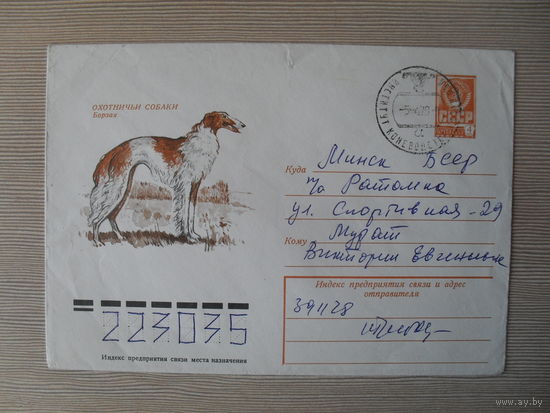 ОХОТНИЧЬИ СОБАКИ
Борзая
СССР
4
Куда
Минск Бсср
п/о Ратомка
ул. Спортивная - 29
Кому
Мурат
Виктории Евгеньевне
Индекс предприятия связи и адрес
отправителя
391128
223035
Индекс предприятия связи места назначения
www.ay.by